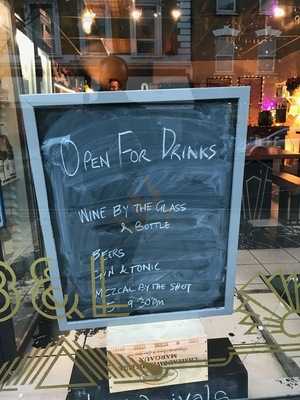 OPEN FOR DRINKS
WINE BY THE GLASS
& BOTTLE
BEERS
GIN & TONIC
MEZCAL BY THE SHOT
9:30pm
MARGAUX